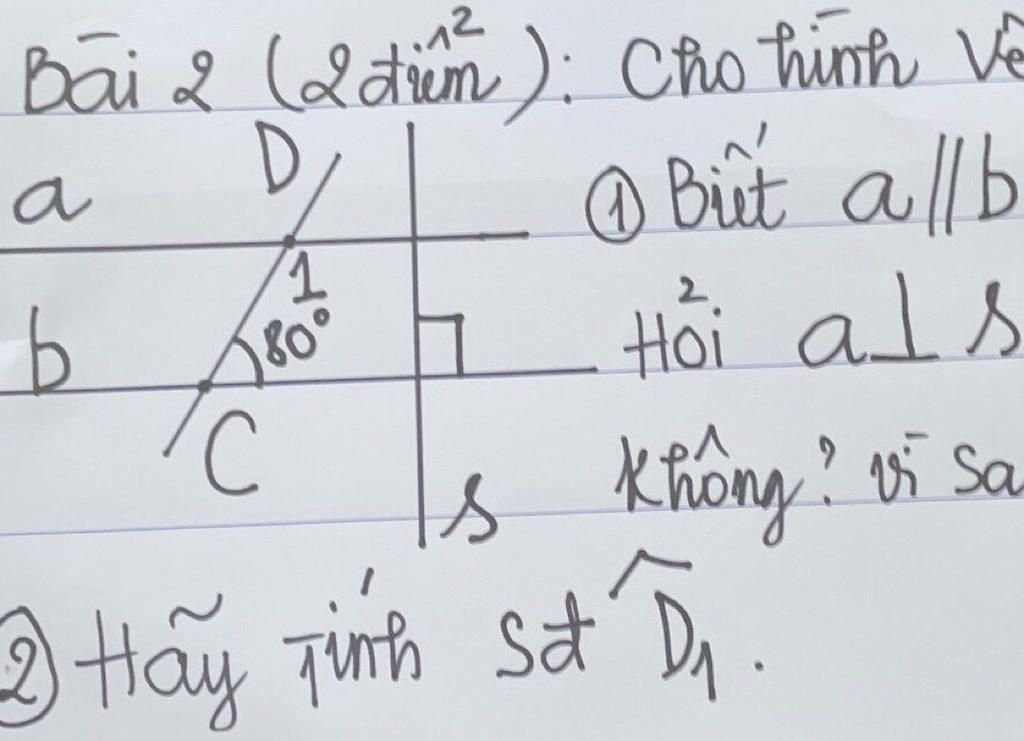 Bài 2 (2 điểm): Cho hình vẽ
a D ① Biết a // b
1
b 80° Hỏi a ⊥ s
C
s không? vì sa
② Hãy tính sđ D̂₁.